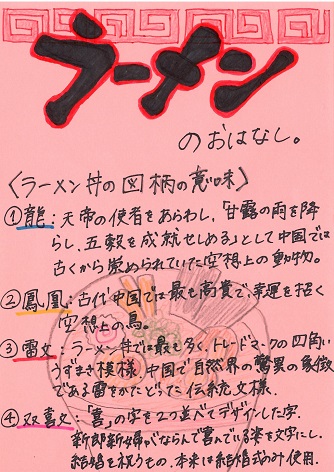 ラーメン
のおはなし。
〈ラーメン丼の図柄の意味〉
①龍:天帝の使者をあらわし、「甘露の雨を降
らし、五穀を成就せしめる」として中国では
古くから崇められていた空想上の動物。
②鳳凰:古代中国では最も高貴で、幸運を招く
空想上の鳥。
③雷文:ラーメン丼では最も多く、トレードマークの四角い
うずまき模様。中国で自然界の驚異の象徴
である雷をかたどった伝統文様。
④双喜文:「喜」の字を2つ並べてデザインした字。
新郎新婦がならんで喜んでいる姿を文字にし、
結婚を祝うもの。本来は結婚式のみ使用。